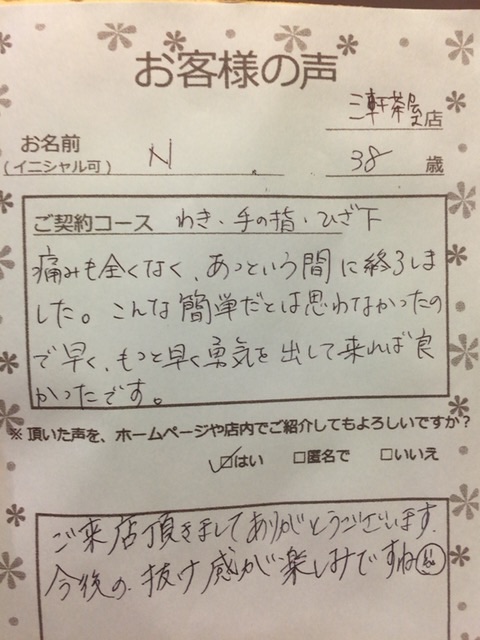 お客様の声
三軒茶屋店
お名前
(イニシャル可)
N
38歳
ご契約コース わき・手の指・ひざ下
痛みも全くなく、あっという間に終了しま
した。こんな簡単だとは思わなかったの
で早く、もっと早く勇気を出して来れば良
かったです。
※頂いた声を、ホームページや店内でご紹介してもよろしいですか?
☑はい □匿名で □いいえ
ご来店頂きましてありがとうございます。
今後の、抜け感が楽しみですね